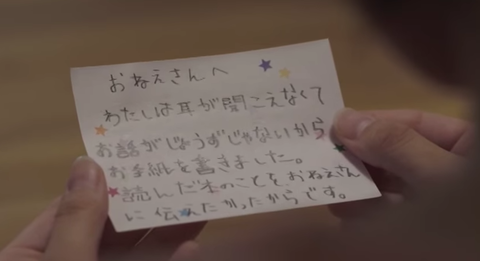 おねえさんへ
わたしは耳が聞こえなくて
お話がじょうずじゃないから
お手紙を書きました。
読んだ本のことをおねえさん
に伝えたかったからです。